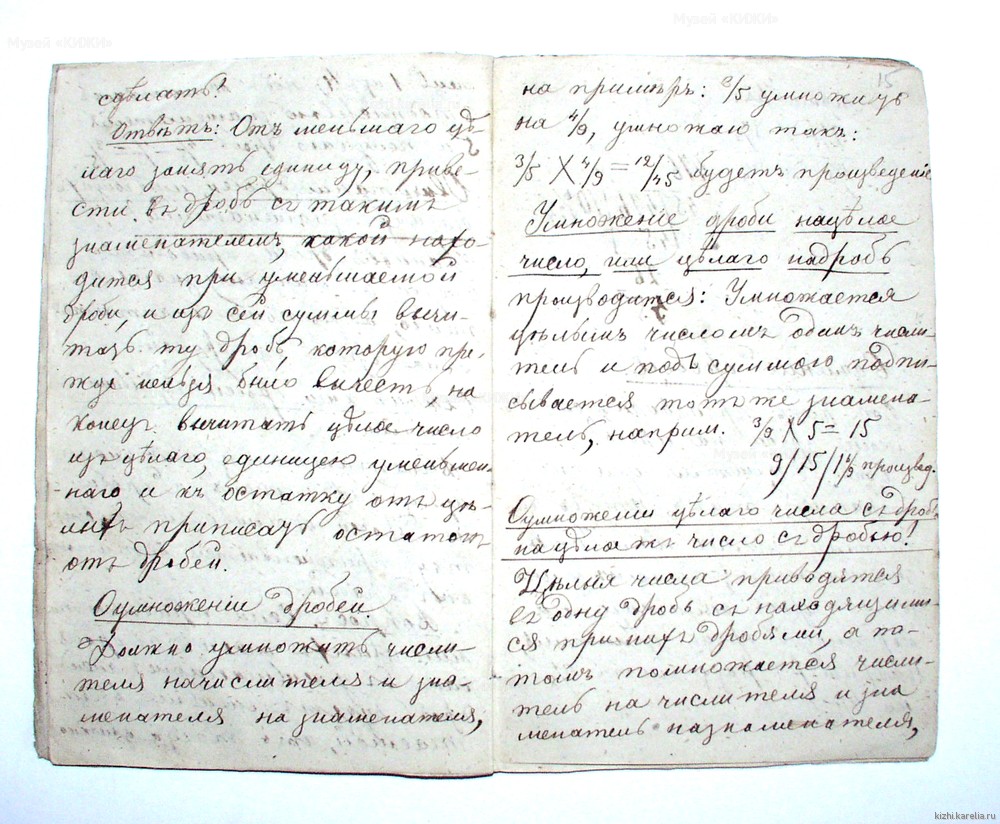 Музей «КИЖИ»
Музей «КИЖИ»
сдѣлать?
Отвѣтъ: Отъ меньшаго цѣ-
лаго занять единицу, приве-
сти въ дробь съ такимъ
знаменателемъ, какой нахо-
дится при уменьшаемой
дроби, и изъ сей суммы вычи-
тать ту дробь, которую пре-
жде нельзя было вычесть, на
конецъ вычитать цѣлое число
изъ цѣлаго, единицею уменьшен-
наго и къ остатку отъ цѣ-
лыхъ приписать остатокъ
отъ дробей.
О умноженіи дробей.
Должно умножить числи-
теля начислителя и зна-
менателя на знаменателя,
15
на примѣръ: 3/5 умножить
на 4/9, умножаю такъ:
3/5 X 4/9 = 12/45 будетъ произведеніе
Умноженіе дроби нацѣлое
число, или цѣлаго надробь
производится: Умножается
цѣлымъ числомъ одинъ числи-
тель и подъ суммою подпи-
сывается тотъ же знамена-
тель, наприм. 3/9 X 5 = 15
9/15/1 6/9 произвед.
О умноженіи цѣлаго числа съ дробью
на цѣлое жъ число съ дробью!
Цѣлыя числа приводятся
въ одну дробь съ находящими-
ся при нихъ дробями, а по-
томъ помножается числи-
тель на числителя и зна
менатель назнаменателя,
kizhi.karelia.ru